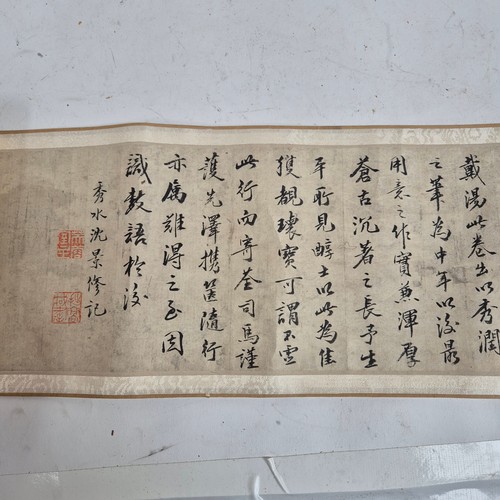 戴湯此卷出以秀潤
之筆為中年以後最
用意之作實兼渾厚
蒼古沉著之長予生
平所見醇士以此為佳
獲觀瓌寶可謂不虛
此行內寄荃司馬謹
護先澤攜篋隨行
亦屬難得之至因
識數語於後
秀水沈景修記